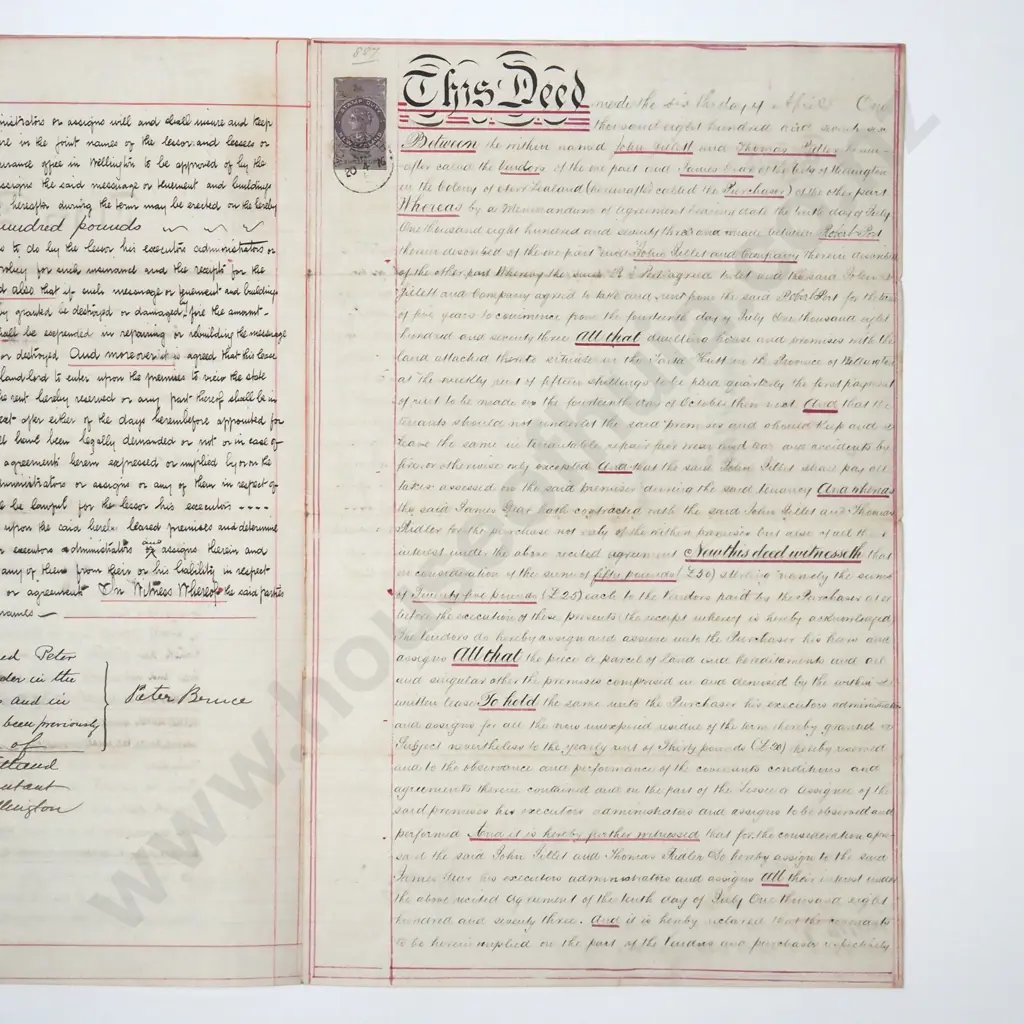 ministrators or assigns will and shall insure and keep
ure in the joint names of the lessor and lessees or
surance office in Wellington to be approved of by the
assigns the said messuage or tenement and buildings
hereafter during the term may be erected on the hereby
hundred pounds
s to do by the lessor his executors administrators or
policy for such insurance and the receipt for the
d also that if such messuage or tenement and buildings
by granted be destroyed or damaged by fire the amount
shall be expended in repairing or rebuilding the messuage
or destroyed And moreover it is agreed that the lessee
landlord to enter upon the premises to view the state
the rent hereby reserved or any part thereof shall be in
rear after either of the days hereinbefore appointed for
ll have been legally demanded or not or in case of
agreements herein expressed or implied by or on the
dministrators or assigns or any of them in respect of
to be lawful for the lessor his executors ----
upon the said hereby leased premises and determine
r executors administrators or assigns therein and
any of them from their or his liability in respect
or agreement In Witness Whereof the said parties
names
ed Peter
der in the
and in
been previously
of
Peter Bruce
utant
llington
867
STAMP DUTY
20 4 76
This Deed made the sixth day of April One
thousand eight hundred and seventy six
Between the within named John Pillett and Thomas Ridler herein
after called the Vendors of the one part and James Gear of the City of Wellington
in the Colony of New Zealand (hereinafter called the Purchaser) of the other part
Whereas by a Memorandum of Agreement bearing date the tenth day of July
One thousand eight hundred and seventy three and made between Robert Port
therein described of the one part and John Pillett and Company therein described
of the other part Whereby the said R Port agreed to let and the said John
Pillett and Company agreed to take and rent from the said Robert Port for the term
of five years to commence from the fourteenth day of July One thousand eight
hundred and seventy three All that dwelling house and premises with the
land attached thereto situate in the Taita Hutt in the Province of Wellington
at the weekly rent of fifteen shillings to be paid quarterly the first payment
of rent to be made on the fourteenth day of October then next And that the
tenants should not underlet the said premises and should keep and
leave the same in tenantable repair fair wear and tear and accidents by
fire or otherwise only excepted And that the said John Pillet shall pay all
taxes assessed on the said premises during the said tenancy And whereas
the said James Gear hath contracted with the said John Pillet and Thomas
Ridler for the purchase not only of the within premises but also of all their
interest under the above recited agreement Now this deed witnesseth that
in consideration of the sum of fifty pounds (£50) sterling namely the sum
of Twenty five pounds (£25) each to the Vendors paid by the Purchaser at or
before the execution of these presents (the receipt whereof is hereby acknowledged
The Vendors do hereby assign and assure unto the Purchaser his heirs and
assigns All that the piece or parcel of land and hereditaments and all
and singular other the premises comprised in and demised by the within
written lease To hold the same unto the Purchaser his executors administrators
and assigns for all the now unexpired residue of the term thereby granted
Subject nevertheless to the yearly rent of Thirty pounds (£30) thereby reserved
and to the observance and performance of the covenants conditions and
agreements therein contained and on the part of the Lessee or assignee of the
said premises his executors administrators and assigns to be observed and
performed And it is hereby further witnessed that for the consideration afore
said the said John Pillet and Thomas Ridler Do hereby assign to the said
James Gear his executors administrators and assigns All their interest under
the above recited Agreement of the tenth day of July One thousand eight
hundred and seventy three. And it is hereby declared that the covenants
to be herein implied on the part of the Vendors and purchaser respectively